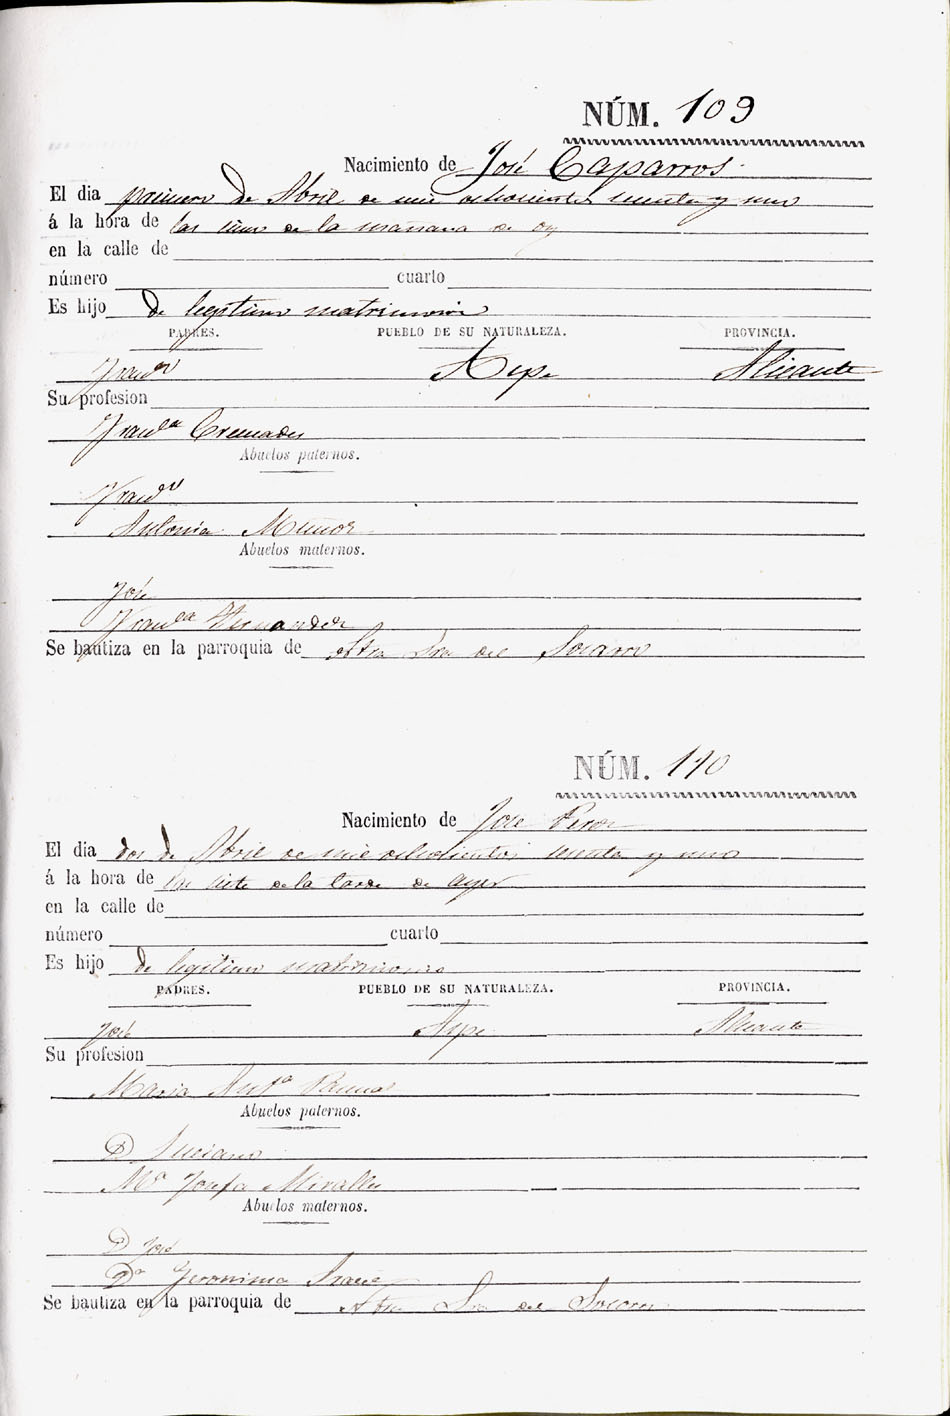 NÚM. 109
Nacimiento de José Caparros.
El dia primero de Abril de mil ochocientos sesenta y uno
á la hora de las cinco de la mañana de oy
en la calle de
número cuarto
Es hijo de legitimo matrimonio
PADRES. PUEBLO DE SU NATURALEZA. PROVINCIA.
Fran.co Aspe Alicante
Su profesion
Fran.ca Cremades
Abuelos paternos.
Fran.co
Antonia Muñoz
Abuelos maternos.
José
Fran.ca Hernandez
Se bautiza en la parroquia de Ntra Sra del Socorro
NÚM. 110
Nacimiento de José
El dia dos de Abril de mil ochocientos sesenta y uno
á la hora de las siete de la tarde de ayer
en la calle de
número cuarto
Es hijo de legitimo matrimonio
PADRES. PUEBLO DE SU NATURALEZA. PROVINCIA.
José Aspe Alicante
Su profesion
Maria Ant.a
Abuelos paternos.
D Luciano
M.a Josefa Miralles
Abuelos maternos.
D José
D.a Geronima
Se bautiza en la parroquia de Ntra Sra del Socorro